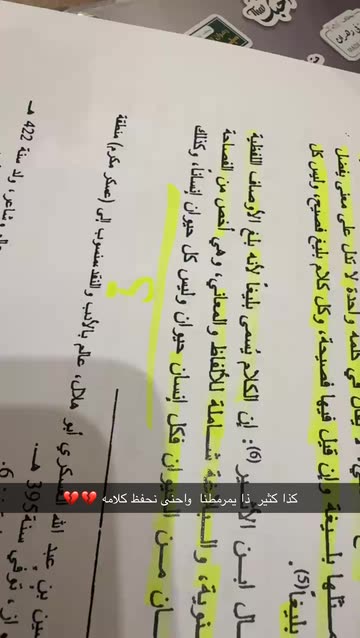 كلمة واحدة، لا تدل على معنى يفضل
مثلها بليغة وإن قيل فيها فصيحة، وكل كلام بليغ فصيح، وليس كل
بليغاً(5).
ال ابن الأثير (6): إن الكلام يُسمى بليغاً لأنه بلغ الأوصاف اللفظية
نوية، والبلاغة شاملة للألفاظ والمعاني، وهي أخص من الفصاحة
ان من الحيوان فكل إنسان حيوان وليس كل حيوان إنساناً، وكذلك
ين بن عبد الله العسكري أبو هلال، عالم بالأدب والنقد منسوب إلى (عسكر مكرم) منطقة
از، توفي سنة 395 هـ.
وشاعر، ولد سنة 422 هـ
كذا كثير ذا يمرمطنا واحنى نحفظ كلامه 💔💔